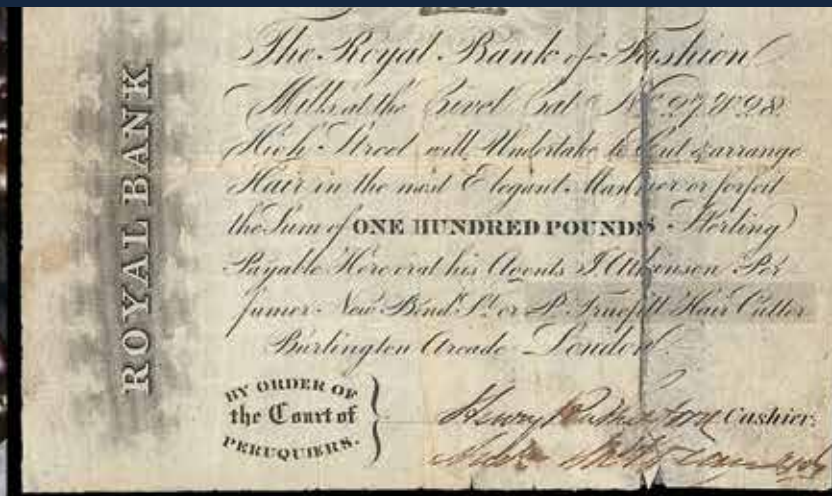 ROYAL BANK
The Royal Bank of Fashion
Mills at the Civet Cat No. 97 & 98
High Street will Undertake to Cut & arrange
Hair in the most Elegant Manner or forfeit
the Sum of ONE HUNDRED POUNDS Sterling
Payable Here or at his Agents J. Atkinson Per
fumer New Bond St. or P. Truefitt Hair Cutter
Burlington Arcade London
BY ORDER OF
the Court of
PERUQUIERS.
Henry Cashier.